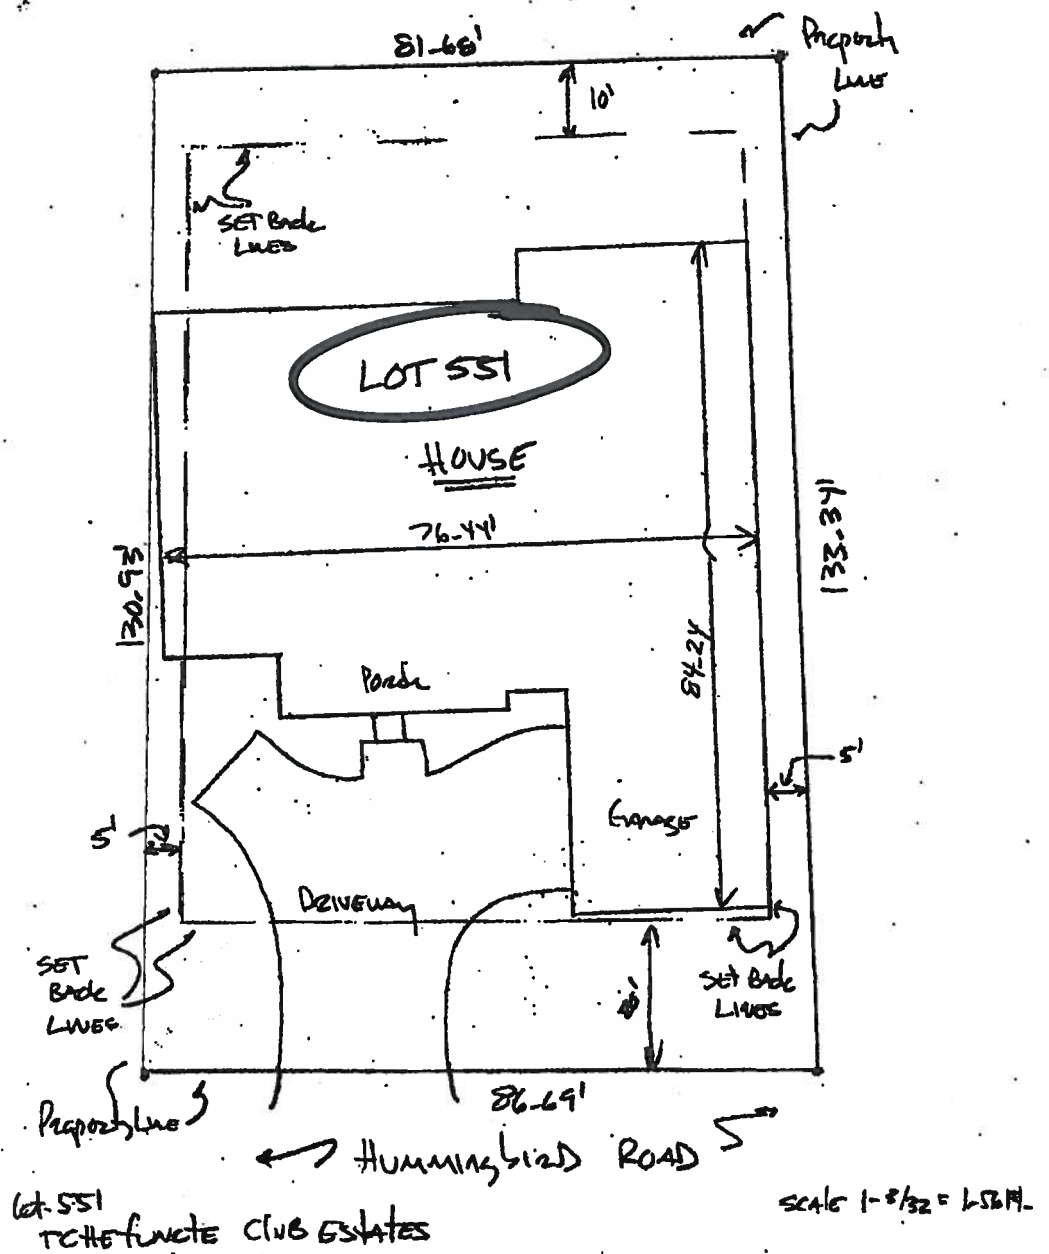 81-68'
Property
Line
10'
SET Back
LINES
LOT 551
HOUSE
76-44'
130-93'
133-34'
84-24
Porch
5'
Garage
5'
DRIVEWAY
SET
BACK
LINES
SET Back
LINES
86-69'
Property Line
HUMMINGbIRD ROAD
Lot-551
TCHEFUNCTE CLUB ESTATES
SCALE 1-8/32 =